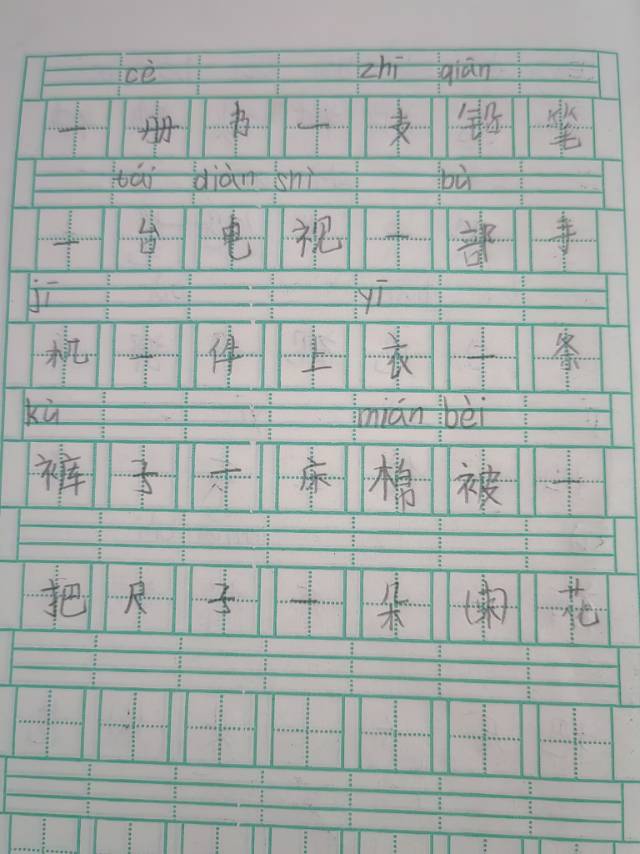 cè zhī qiān
一册书一支铅笔
tái diàn shì bù
一台电视一部手
jī yī
机一件上衣一条
kù mián bèi
裤子一床棉被一
把尺子一朵(束)花